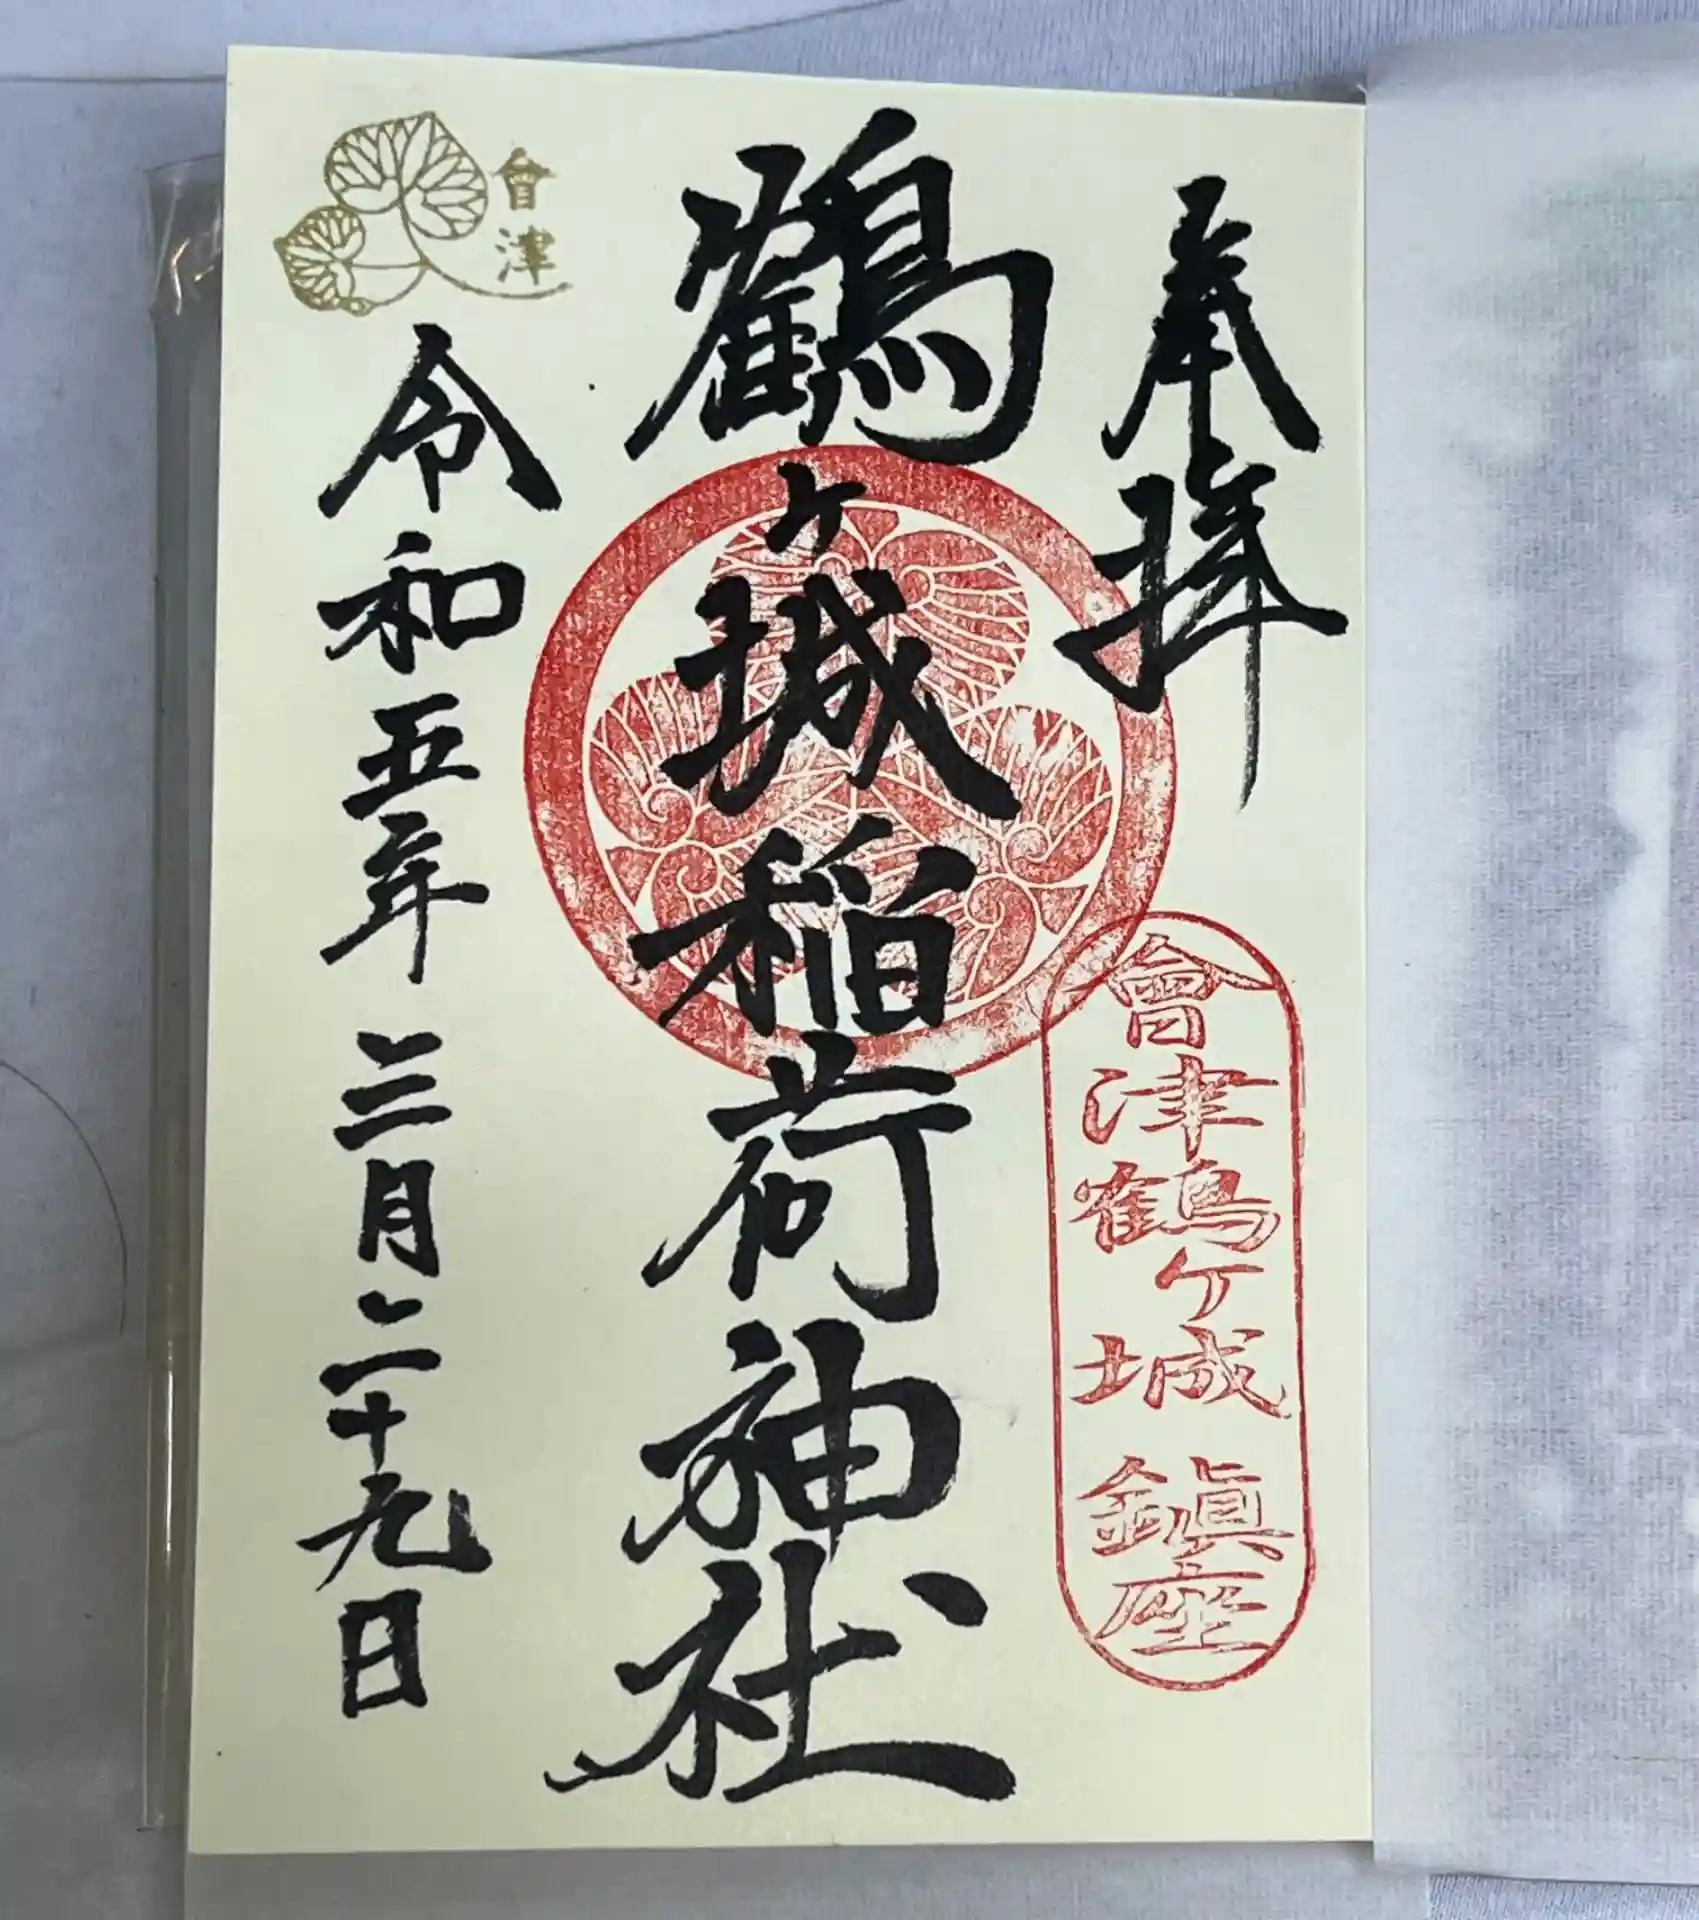 奉拝
會津鶴ヶ城 鎮座
鶴ヶ城稲荷神社
會津
令和五年三月二十九日